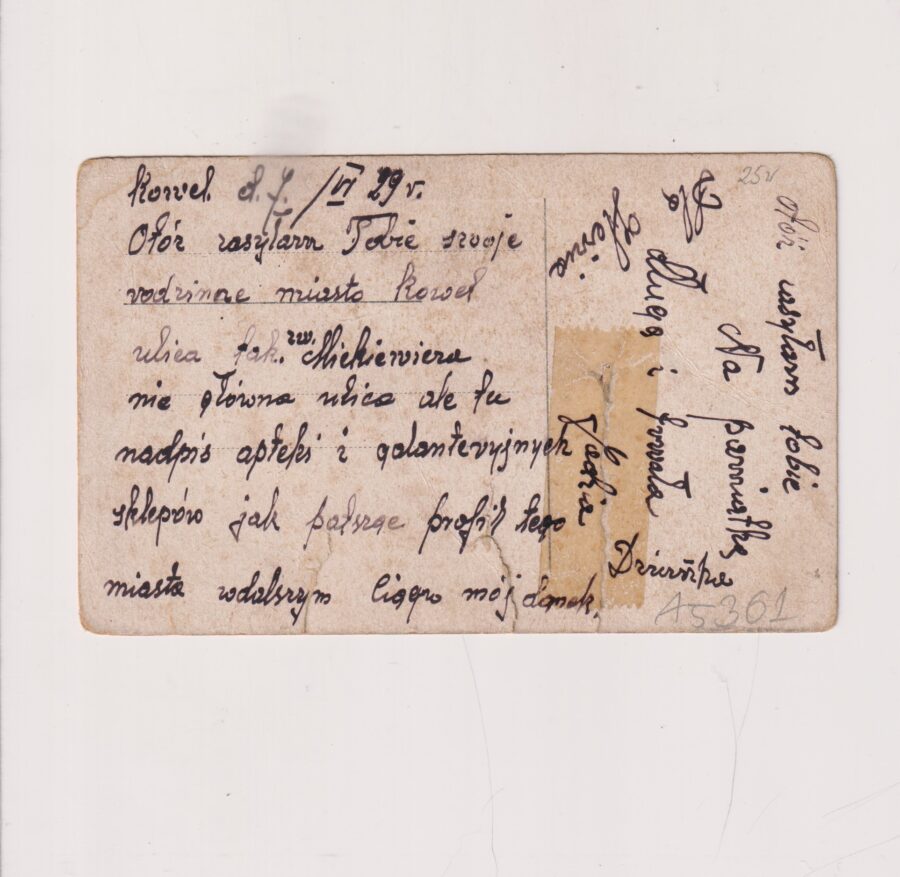 Kowel. d. 7. /VI 29 r.
Otóż zasyłam Tobie swoje
rodzinne miasto Kowel
ulica tak. zw. Mickiewicza
nie główna ulica ale tu
nadpis apteki i galanteryjnych
sklepów jak patrząc profil tego
miasta wdalszym ciągu mój domek.
otóż zasyłam tobie
Na pamiątkę
Dla długa i
Dziuńka
Lenie
Jadzia
25v
A5361